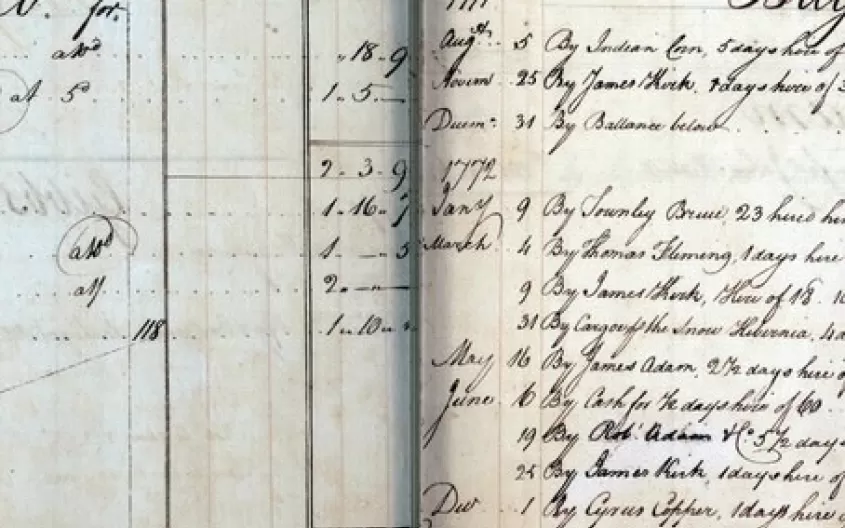 for.
awd
" 18 " 9
at 5d
1 " 5 " —
2 " 3 " 9
1 " 16 " 7
awd
1 " — " 5
a 1/
2 " — " —
118
1 " 10 "
1771
Augst. 5 By Indian Corn, 5 days hire of
Novem 25 By James Kirk, days hire of 3
Decemr. 31 By Ballance below
1772
Jany 9 By Townley Bruce, 23 hired
March 4 By Thomas Fleming, 1 days hire
9 By James Kirk, Hire of 18
31 By Cargo of the Snow Hibernia, 4
May 16 By James Adam, 2 1/2 days hire of
June 6 By Cash for 1/2 days hire of 60
19 By Robt. Adam & Co. 5 1/2 days
25 By James Kirk, 1 days hire of
Dec 1 By Cyrus Copper, 1 days hire of